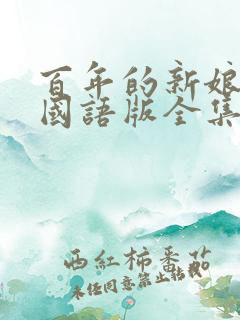 百年的新娘
國語版全集
西紅柿番茄
未任同意禁止轉載